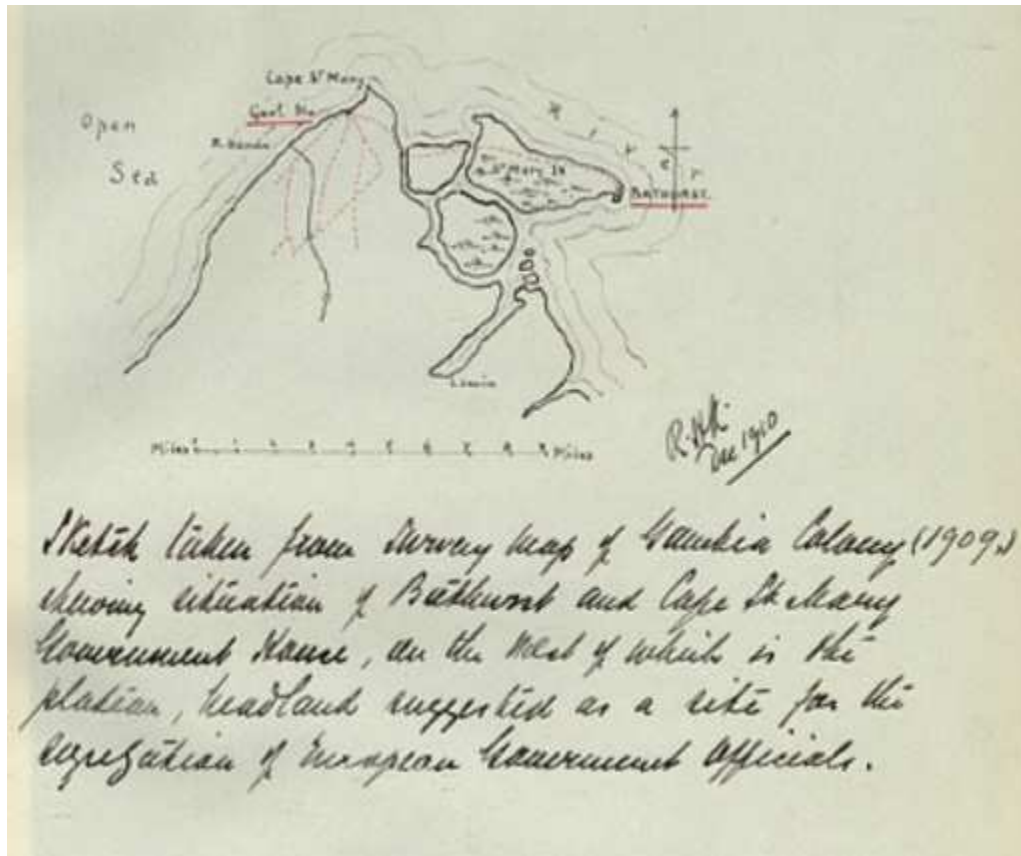 Cape St Mary
Govt Ho.
Open
Sea
St Mary Is
BATHURST.
Lamin
Miles
Miles
Dec 1910
Sketch taken from Survey Map of Gambia Colony (1909.)
shewing situation of Bathurst and Cape St Mary
Government House, on the West of which is the
plateau, headland suggested as a site for the
segregation of European Government Officials.